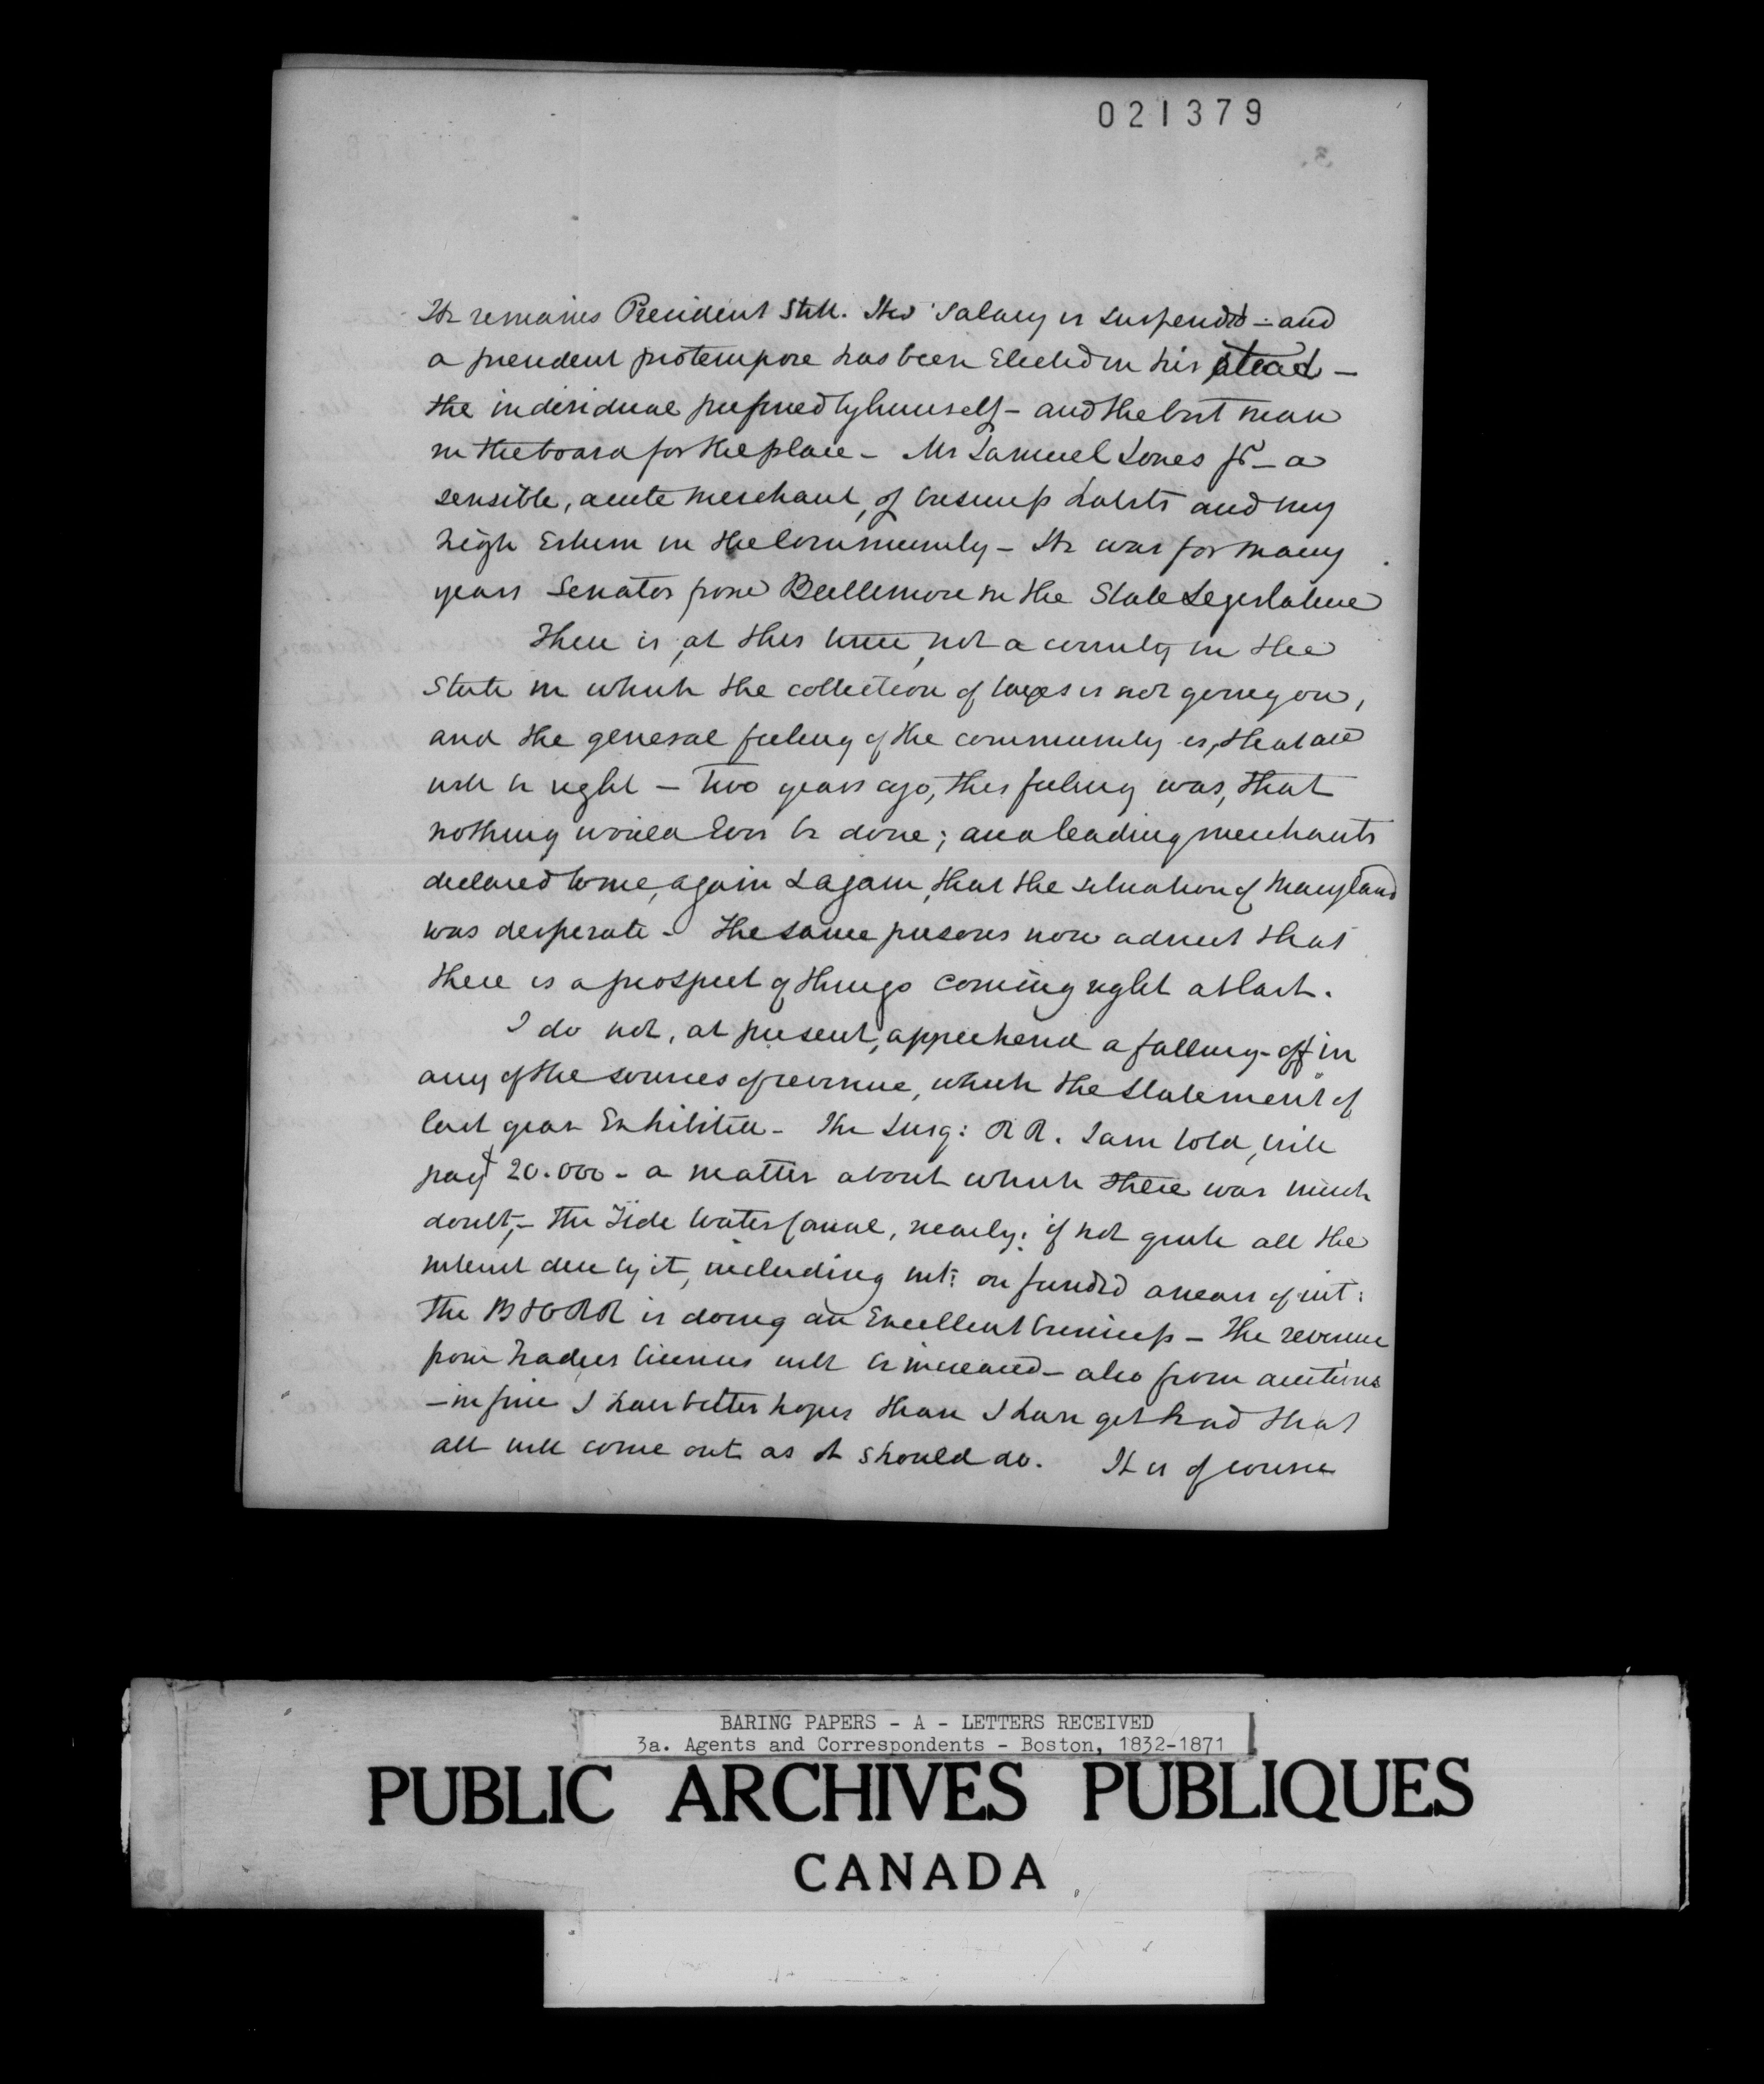 021379
3.
He remains President still. His salary is suspended - and
a president protempore has been Elected in his stead -
the individual preferred by himself - and the best man
in the board for the place - Mr Samuel Jones Jr - a
sensible, acute merchant, of business habits and very
high Esteem in the Community - He was for many
years Senator from Baltimore in the State Legislature
There is, at this time, not a county in the
State in which the collection of taxes is not going on,
and the general feeling of the community is, that all
will be right - Two years ago, this feeling was, that
nothing would Ever be done; and leading merchants
declared to me, again & again, that the situation of Maryland
was desperate - The same persons now admit that
there is a prospect of things coming right at last.
I do not, at present, apprehend a falling-off in
any of the sources of revenue, which the statement of
last year Exhibited - The Susq: RR. I am told, will
pay $ 20.000 - a matter about which there was much
doubt, - The Tide Water Canal, nearly: if not quite all the
interest due by it, including int: on funded arrears of int:
The B & O RR is doing an Excellent business - The revenue
from traders licenses will be increased - also from auctions
- in fine I have better hopes than I have yet had that
all will come out as it should do. It is of course
BARING PAPERS - A - LETTERS RECEIVED
3a. Agents and Correspondents - Boston, 1832-1871
PUBLIC ARCHIVES PUBLIQUES
CANADA